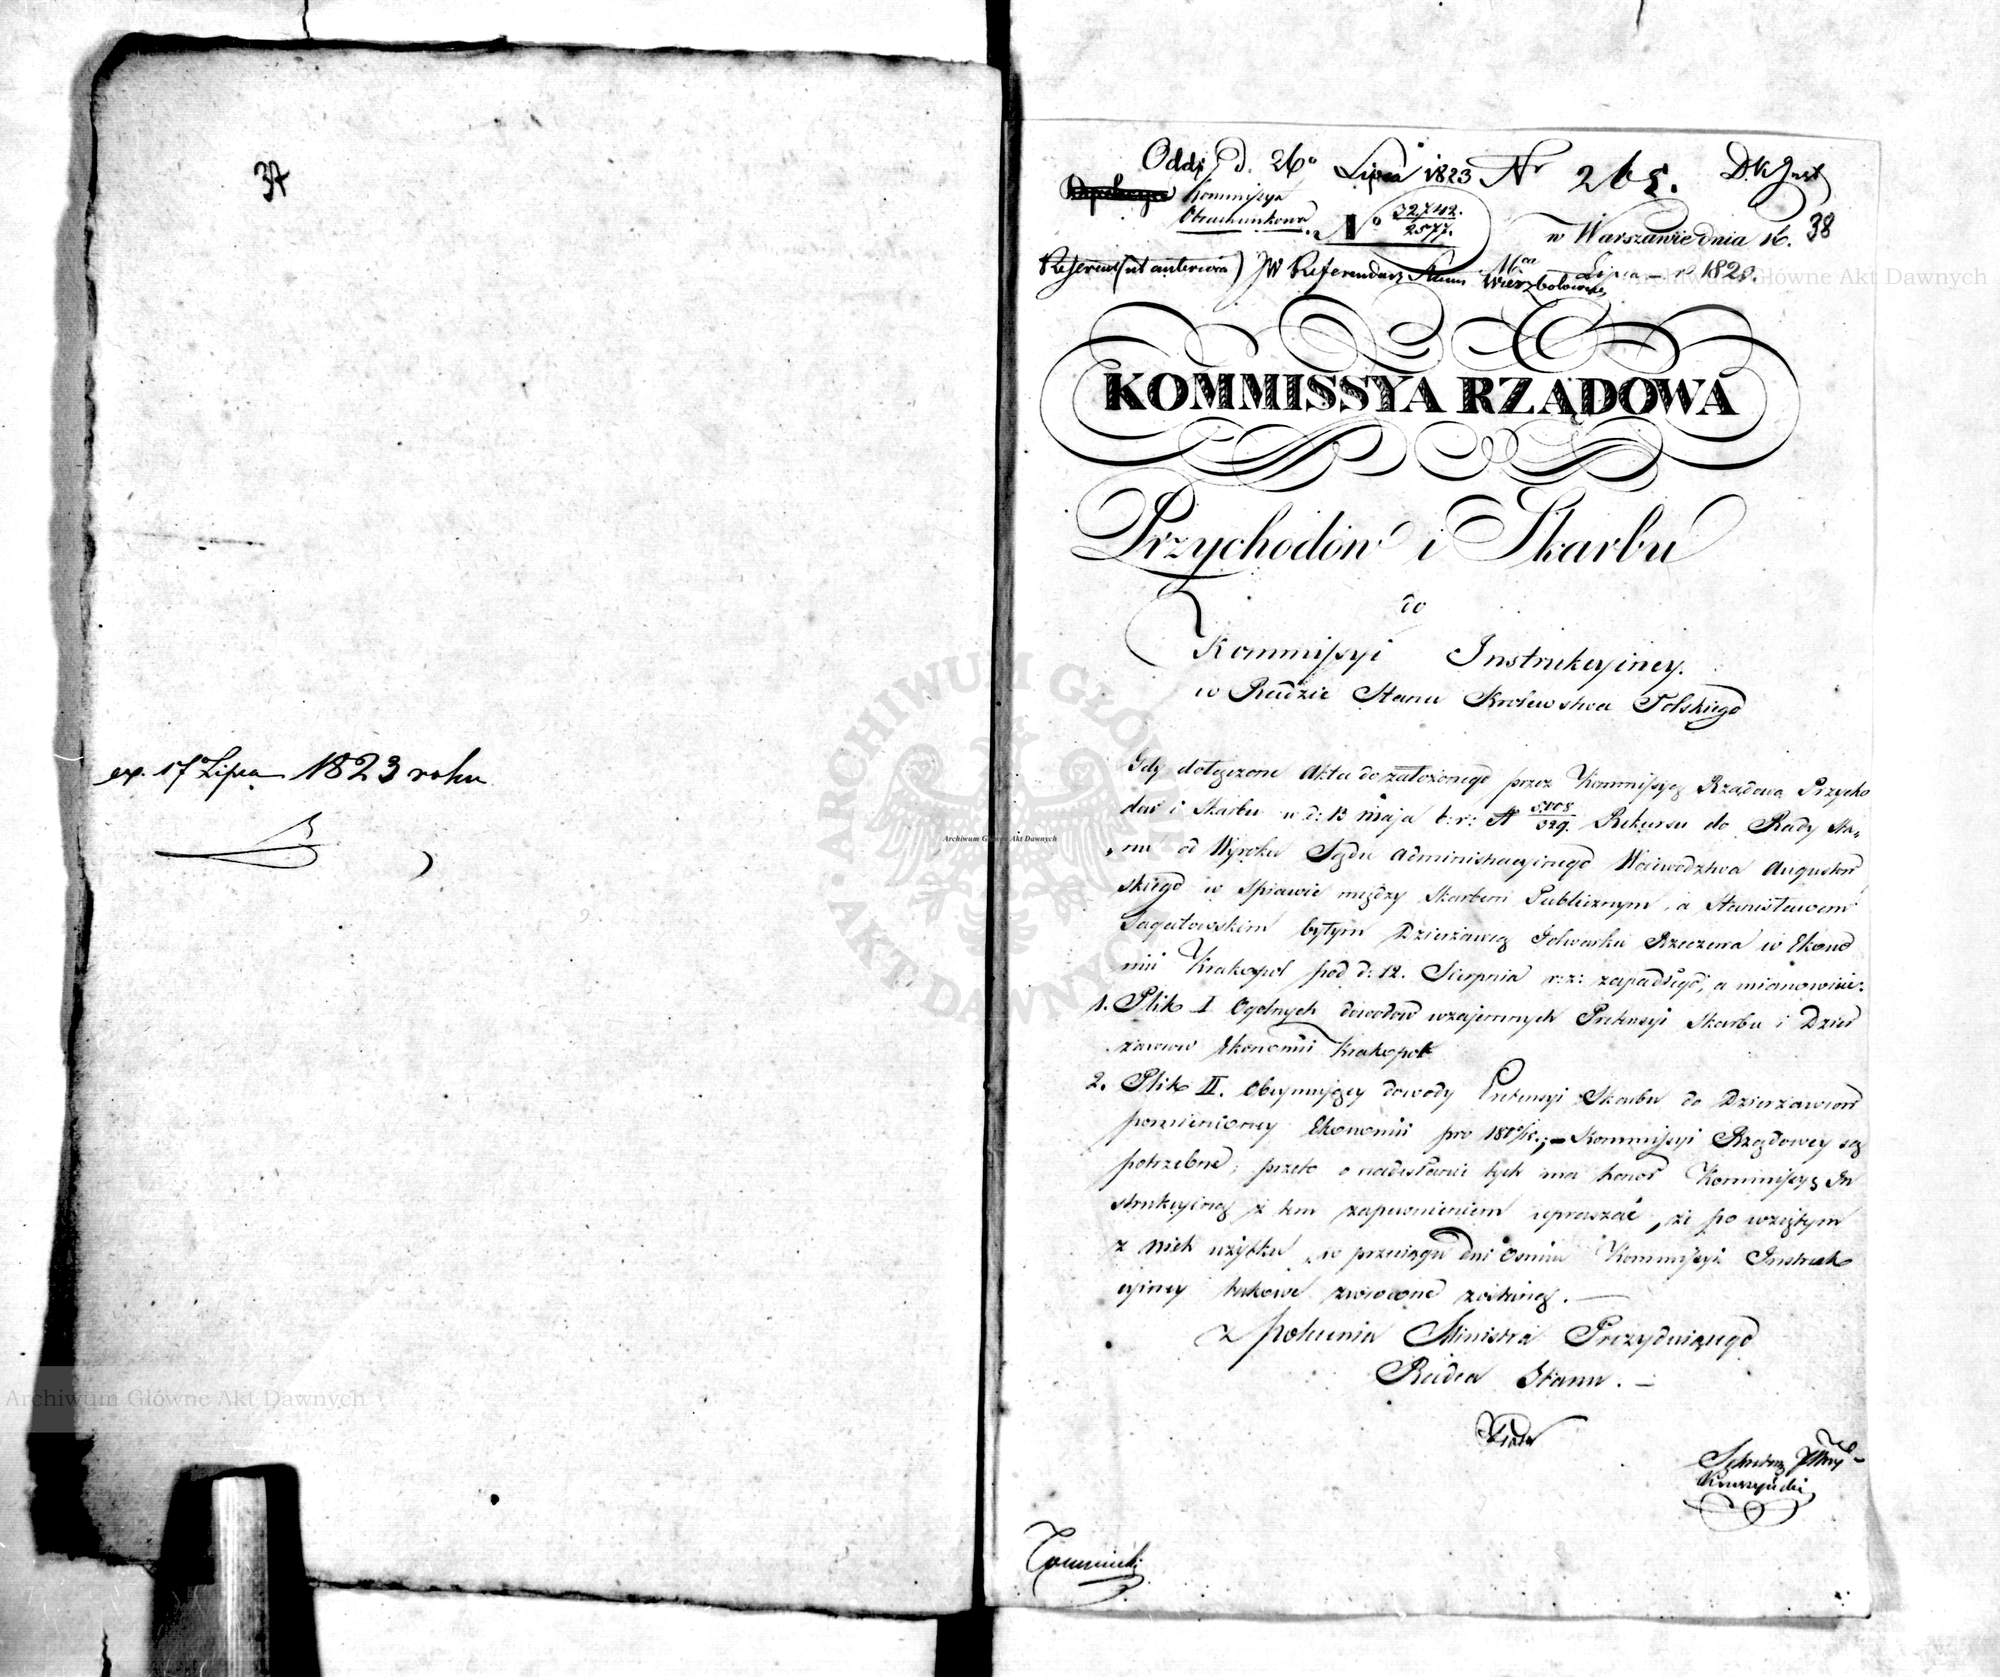 37
ex. 17 Lipca 1823 roku
Odd: d. 26º Lipca 1823 Nr 265. D.K. Inst
Kommissya
Obrachunkowa. Nº 32742./2577. w Warszawie dnia 16. 38
Referent (ut anteriora) JW Referendarz Stanu Wierzbołowski Mca Lipca r. 1823.
KOMMISSYA RZĄDOWA
Przychodów i Skarbu
do
Kommissyi Instrukcyiney.
w Radzie Stanu Krolewstwa Polskiego
Gdy dołączone Akta do założonego przez Kommissyą Rządową Przycho
dow i Skarbu w d: 13 Maja b: r: Rekursu do Rady Sta„
„nu od Wyroku Sądu Administracyinego Woiewodztwa Augustow
skiego w sprawie między Skarbem Publicznym, a Stanisławem
byłym Dzierżawcą Folwarku w Ekono
mii Krakopol pod d: 12. Sierpnia r: z: zapadłego, a mianowicie.
1. Plik I Ogolnych dowodow wzajemnych Pretensyi Skarbu i Dzier
zawcow Ekonomii Krakopol
2. Plik II. Obeymuiący dowody Pretensyi Skarbu do Dzierzawcow
pomienioney Ekonomii pro Kommissyi Rządowey są
potrzebne; przeto o nadesłanie tych ma honor Kommissyą In
strukcyiną z tem zapewnieniem upraszać, że po wziętym
z nich użytku, w przeciągu dni Osmiu Kommissyi Instruk
cyiney takowe zwrocone zostaną.
z polecenia Ministra Prezyduiącego
Radca Stanu.